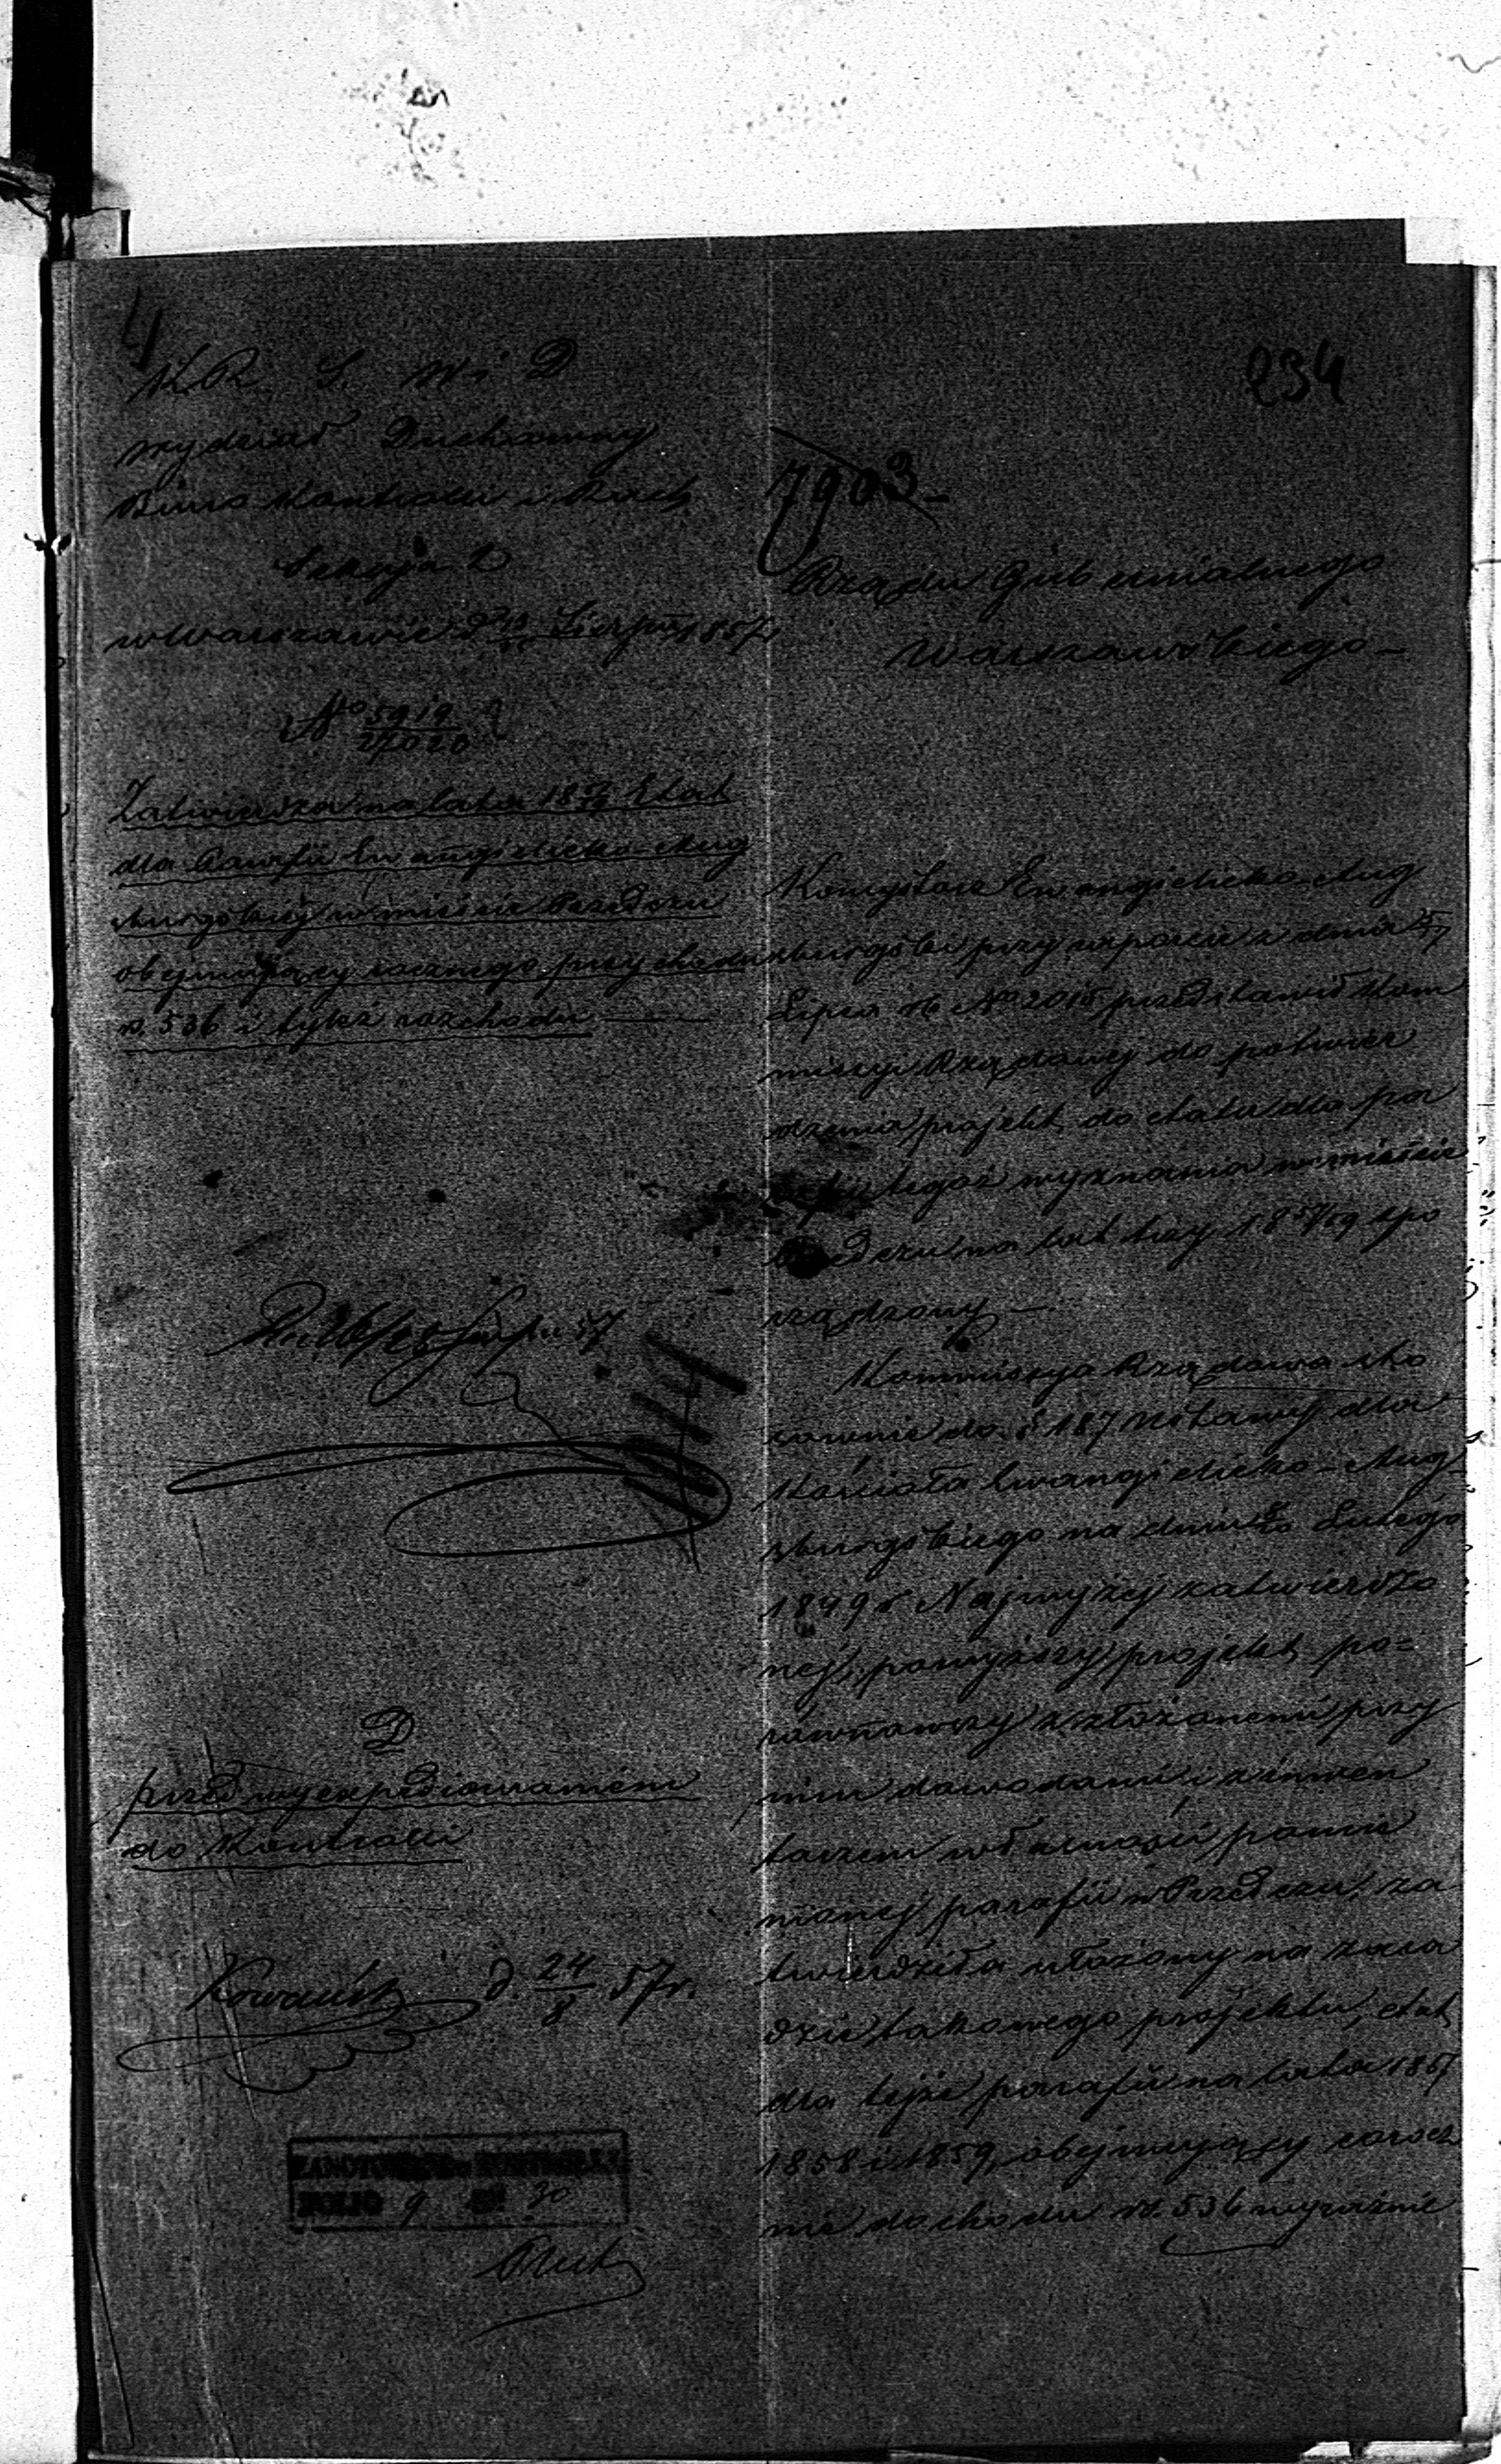 4
KR. S. W i D
Wydział Duchowny
Biuro Kontrolli i Rach
Sekcja 2
w Warszawie d 13/25 Sierpn 1857 r
No 5919/27020
Zatwierdza na lata 1857/59 Etat
dla Parafii Ewangielicko-Aug
sburgskiej w mieście Przedczu
obejmujący rocznego przychodu
rs. 536 i tyleż rozchodu —
57
D
przed wyexpedjowaniem
do Kontrolli
d. 24/8 57 r.
ZANOTOWANO w KONTROLLI
FOLIO 9 30
234
7903
Rządu Gubernialnego
Warszawskiego —
Konsystorz Ewangielicko-Aug
sburgski przy raporcie z dnia 5/17
Lipca rb No 2015 przedstawił Kom
missyi Rządowej do potwier
dzenia projekt do etatu dla par
tegoż wyznania w mieście
Przedczu na lat trzy 1857/59 spo
rządzony —
Kommissya Rządowa sto
sownie do § 187 Ustawy dla
Kościoła Ewangielicko-Aug
sburgskiego na dniu 8/20 Lutego
1849 r Najwyżej zatwierdzo
nej, powyższy projekt po=
równawszy z złożonemi przy
nim dowodami i z inwen
tarzem własności pomie
nionej parafii w Przedczu, za
twierdziła ułożony na zasa
dzie takowego projektu, etat
dla tejże parafii na lata 1857
1858 i 1859, obejmujący corocz
nie dochodu rs. 536 wyraźnie